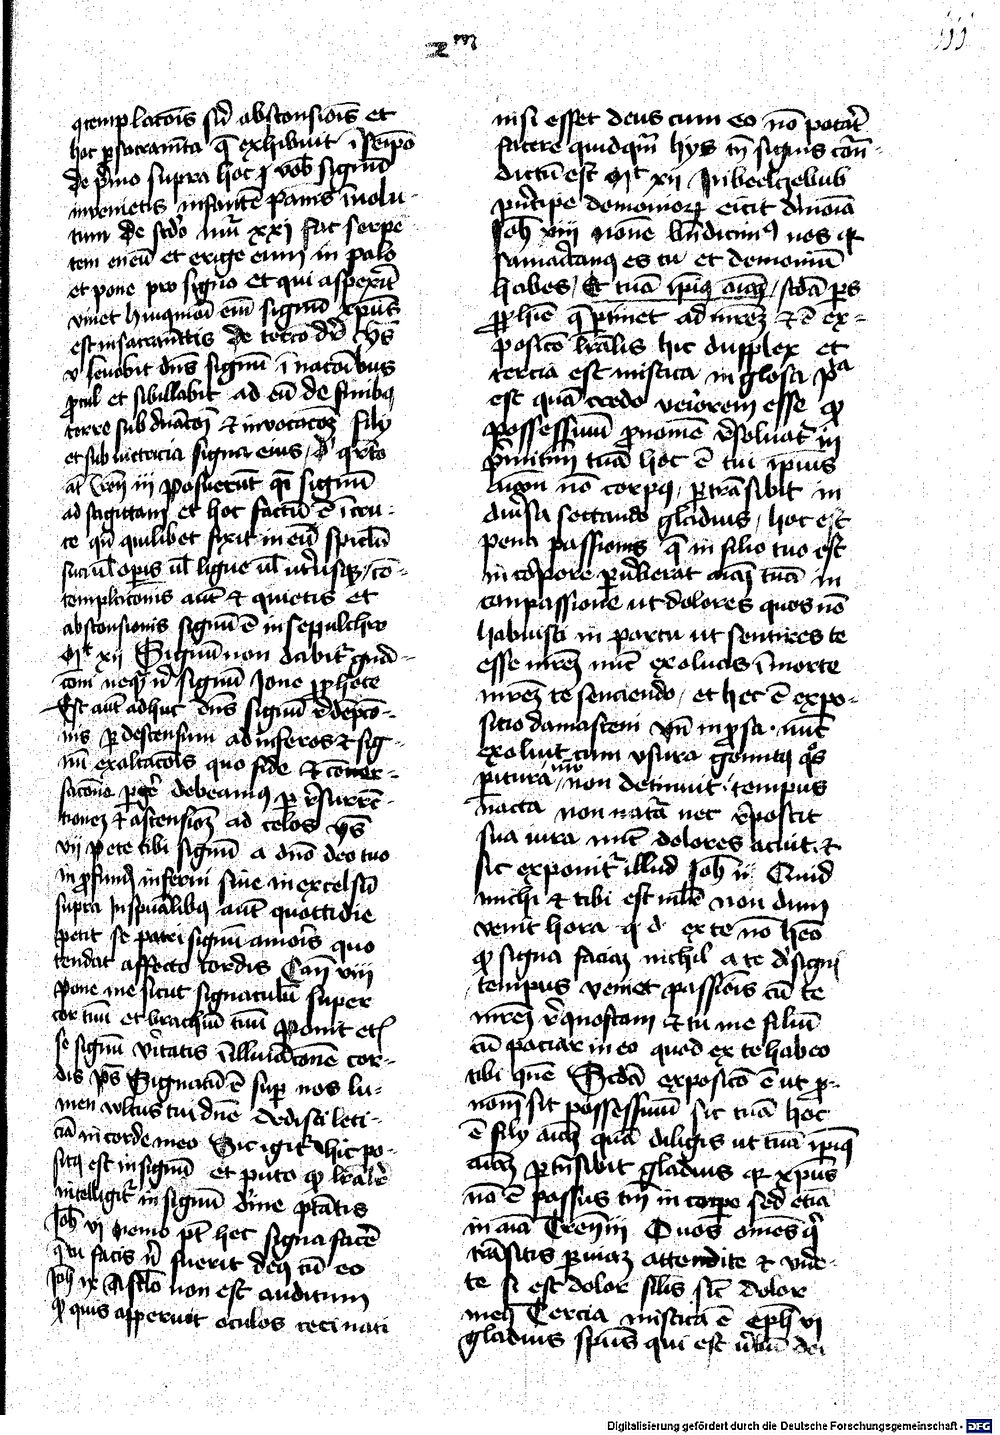 2m
iij
(con)templac(i)o(n)is s(e)d absconsio(n)is et
hoc p(er) sacram(en)ta q(uod) exhibuit i(n) seip(s)o
de p(ri)mo supra hoc vob(is) signu(m)
invenietis infante(m) pannis i(n)volu-
tum de s(e)c(un)do nu(meri) xxi fac serpe(n)
tem eneu(m) et erige eum in palo
et pone pro signo et qui aspexe(r)it
vivet signu(m) (Christus)
est in sacram(en)tis de tercio ys
v levabit d(omi)n(u)s signu(m) i(n) nac(i)o(n)ibus
p(ro)cul et sibillabit ad eu(m) de finib(us)
terre sub et invocac(i)o(n)e(m) filij
et sub victricia signa eius
at tre(norum) iij posuerunt signu(m)
ad sagittam et hoc factu(m) e(st) i(n) cru-
ce q(ua)n(do) quilibet fixit in eu(m) spiculu(m)
co(n)-
templac(i)onis aut(em) et quietis et
absconsionis signu(m) e(st) in sepulchro
m(a)t xii Signu(m) non dabit(ur)
neq(ue) n(isi) signu(m) Jone p(ro)phete
Est aut(em) adhuc d(omi)n(u)s signu(m) re de(m)pc(i)o-
nis p(er) descensum ad inferos et sig-
nu(m) exaltac(i)o(n)is quo fide et
debeamus p(er) resurrec-
tionem et ascensione(m) ad celos ys
vij pete tibi signu(m) a d(omi)no deo tuo
in p(ro)fundu(m) inferni sive in excelsu(m)
supra In sp(irit)ualibus aut(em) quottidie
petit se pa(t)ri signu(m) amoris quo
tendat affectio cordis Can(t) viij
pone me sicut signaculu(m) super
cor tuu(m) et brachiu(m) tuu(m) ponit et(iam)
se signu(m) v(er)itatis i(n) illuminac(i)one cor-
dis p(salmu)s Signatu(m) e(st) sup(er) nos lu-
men vultus tui d(omi)ne dedisti leti-
cia(m) in corde meo Sic igit(ur) hic po-
situs est in signu(m) et puto q(uod)
intelligit(ur) in signu(m) divine p(otes)tatis
Joh(annes) vi nemo p(otes)t hec signa face(re)
q(ue) tu facis n(isi) fuerit deus cu(m) eo
Joh(annes) ix A seculo non est auditum
q(uod) quis apperuit oculos ceci nati
nisi esset deus cum eo no(n) poterat
facere quidq(ua)m hijs t(ame)n signis con(tra)-
dictu(m) est m(a)t xij In beelczebub
p(ri)ncipe demonior(um) eicit demonia
Joh(annes) viij nonne b(e)n(e) dicim(us) nos q(uia)
samaritan(us) es tu et demoniu(m)
habes Et tua(m) ip(s)ius a(n)i(m)a(m) s(e)c(un)da p(ar)s
p(ro)phe(c)ie q(ue) p(er)tinet ad m(at)rem et e(st) ex-
posic(i)o l(itte)ralis hic dupplex et
tercia est mistica in glosa p(rim)a
est qua(m) credo veriorem esse q(uod)
possessivu(m) p(ro)nomen resolvat(ur) in
p(ri)mitivu(m) tua(m) hoc e(st) tui ipsius
a(n)i(m)am no(n) corpus p(er)transibit in
diversa secando gladius hoc est
pena passionis q(ue) in filio tuo est
in corpore p(er) a(n)i(m)a(m) tua(m) in
conpassione ut dolores quos no(n)
habuisti in partu ut sentires te
esse m(at)rem nunc exolvas i(n) morte
m(at)rem te senciendo et hec e(st) expo-
sitio damasceni v(n)d(e) in p(ro)sa nu(n)c
exolvit cum usura gemitus q(u)os
paritura non detinuit tempus
nacta non natura(m) nec reposcit
sua iura nu(n)c dolores acuit et
sic exponit(ur) illud Joh(annes) ij Quid
michi et tibi est m(u)l(i)er non dum
venit hora q d ex te no(n) h(ab)eo
q(uod) signa facia(m) nichil a te
tempus veniet passio(n)is cu(m) te
m(at)rem recognosca(m) et tu me filiu(m)
cu(m) paciar in eo quod ex te habeo
Secu(n)da exposic(i)o e(st) ut p(ro)-
nom(en) sit possessivu(m) sic tua(m) hoc
e(st) filij a(n)i(m)am qua(m) diligis ut tua(m) ip(s)ius
a(n)i(m)am p(er)t(ra)nsibit gladius q(uia) (Christus)
no(n) e(st) passus t(antu)m in corpo(re) sed etia(m)
in a(n)i(m)a Tren(orum) iij O vos omnes q(ui)
transitis per viam attendite et vide-
te si est dolor similis sic(ut) dolor
meus Tercia mistica e(st) Eph vi
gladius sp(iritu)s qui est v(er)bu(m) dei
Digitalisierung gefördert durch die Deutsche Forschungsgemeinschaft - DFG